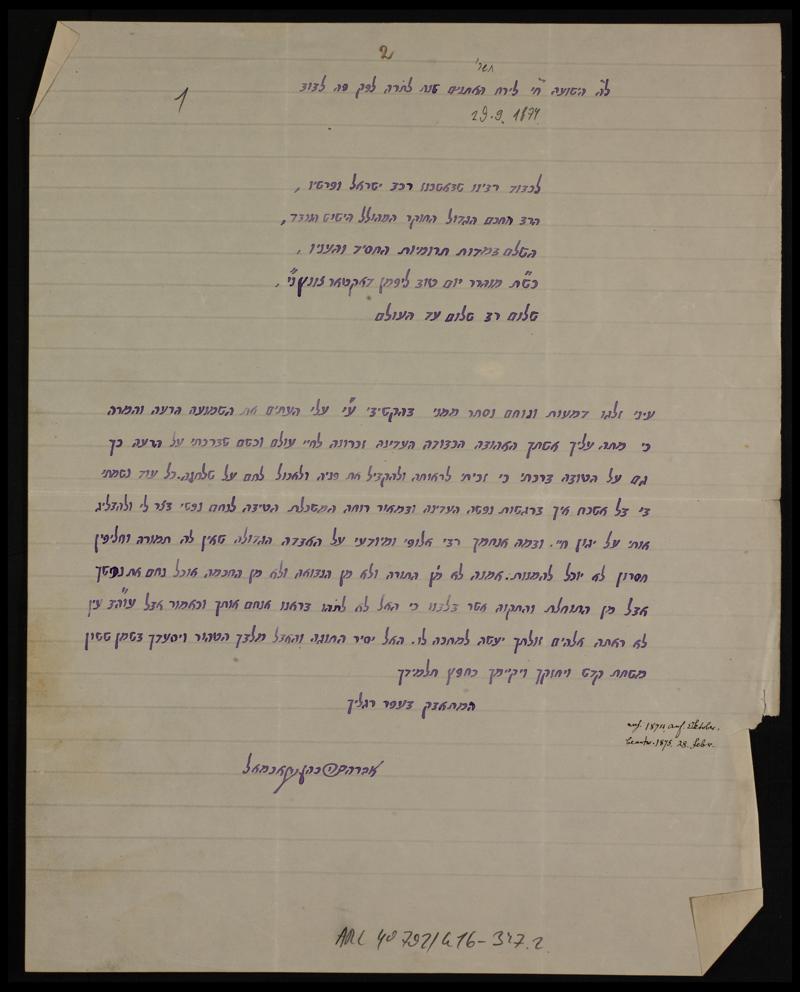 2
תשרי
ליל הושענה חי׳ לירח האתנים שנת לתרה לפק פה לבוב
1
29.9.1874
לכבוד רבינו שבאשכנז רכב ישראל ופרשיו,
הרב החכם הגדול החוקר המהולל הישיש הנכבד,
השלם במדות תרומיות החסיד והעניו,
כש״ת מוהרר יום טוב ליפמן דאקטאר צונץ נ״י,
שלום רב שלום עד העולם
עיני זלגו דמעות ונוחם נסתר ממני בהקשיבי ע״י עלי העתים את השמועה הרעה והמרה
כי מתה עליך אשתך האהובה הכבודה העדינה זכרונה לחיי עולם וכשם שברכתי על הרעה כך
גם על הטובה ברכתי כי זכיתי לראותה ולהקביל את פניה ולאכול לחם על שלחנה. כל עוד נשמתי
בי בל אשכח איך ברגשות נפשה העדינה ובמאור רוחה המשכלת הטיבה לנחם נפשי בצר לי ולהבליג
אותי על יגון חיי. ובמה אנחמך רבי אלופי ומיודעי על האבדה הגדולה שאין לה תמורה וחליפין
חסרון לא יוכל להמנות. אמנה לא מן התורה ולא מן הנבואה ולא מן החכמה אוכל נחם את נפשך
אבל מן התוחלת והתקוה אשר בלבנו כי האל לא לתהו בראנו אנחם אותך וכאמור אצל עוה״ב עין
לא ראתה אלהים זולתך יעשה למחכה לו. האל יסיר התוגה והאבל מלבך הטהור ויסעדך בשמן ששון
משחת קדש ויחזקך ויקיימך כחפץ תלמידך
המתאבק בעפר רגליך
אברהם כהענא קאכמאל
anf. 1874. anf. Oktober.
beantw. 1875. 28. Febr.
ARC 4° 792/G16-347.2